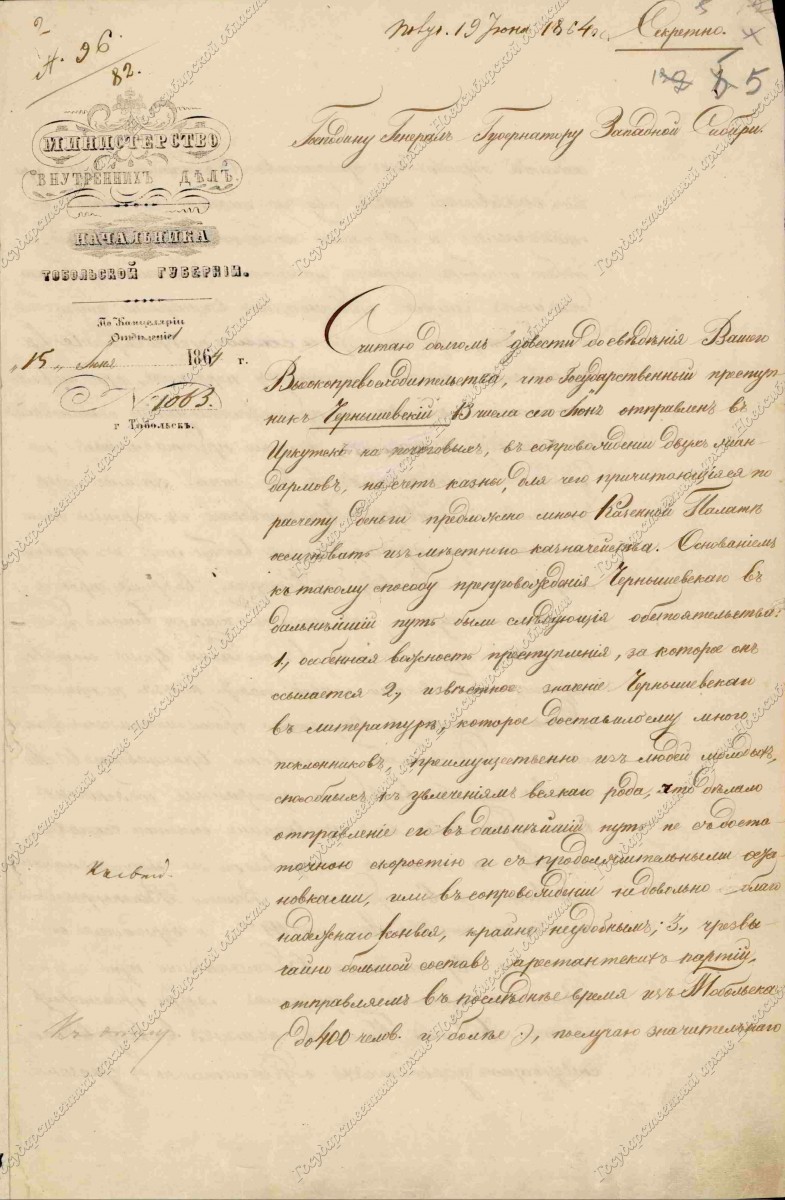 2
А. 96.
82.
Получ. 19 Июня 1864 г.
Секретно.
5
Господину Генералъ Губернатору Западной Сибири.
МИНИСТЕРСТВО
ВНУТРЕННИХЪ ДѢЛЪ.
НАЧАЛЬНИКА
ТОБОЛЬСКОЙ ГУБЕРНІИ.
По Канцеляріи
Отдѣленіе
„15„ Іюня 1864 г.
№ 1063.
г Тобольскъ.
Считаю долгомъ довести до свѣдѣнія Вашего
Высокопревосходительства, что Государственный преступ
никъ Чернышевскій 13 числа сего Іюня отправленъ въ
Иркутскъ на почтовыхъ, въ сопровожденіи двухъ жан-
дармовъ, на счетъ казны, для чего причитающіяся по
расчету деньги предложено мною Казенной Палатѣ
ассигновать изъ мѣстнаго казначейства. Основаніемъ
къ такому способу препровожденія Чернышевскаго въ
дальнѣйшій путь были слѣдующія обстоятельства:
1., особенная важность преступленія, за которое онъ
ссылается 2., извѣстное значеніе Чернышевскаго
въ литературѣ, которое доставило ему много
поклонниковъ, преимущественно изъ людей молодыхъ,
способныхъ къ увлеченіямъ всякаго рода, что дѣлало
отправленіе его въ дальнѣйшій путь не съ доста
точною скоростію и съ продолжительными оста
новками, или въ сопровожденіи не довольно благо
надежнаго конвоя, крайне неудобнымъ; 3., чрезвы
чайно большой составъ арестантскихъ партій,
отправляем. въ послѣднее время изъ Тобольска
(до 400 челов. и болѣе), по случаю значительнаго
Государственный архив Новосибирской области